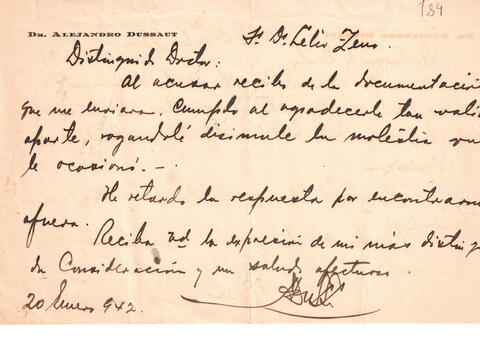 184
Dr. Alejandro Dussaut
Sr. Dr. Celir Zeno
Distinguido Doctor:
Al acusar recibo de la documentación
que me enviara, cumplo al agradecerle tan valio
aporte, rogandole disimule la molestia que
le ocasionó. -
He retardo la respuesta por encontrarm
afuera.
Reciba ud la expresión de mi más disting
da consideración y un saludo afectuoso
20 Enero 942.